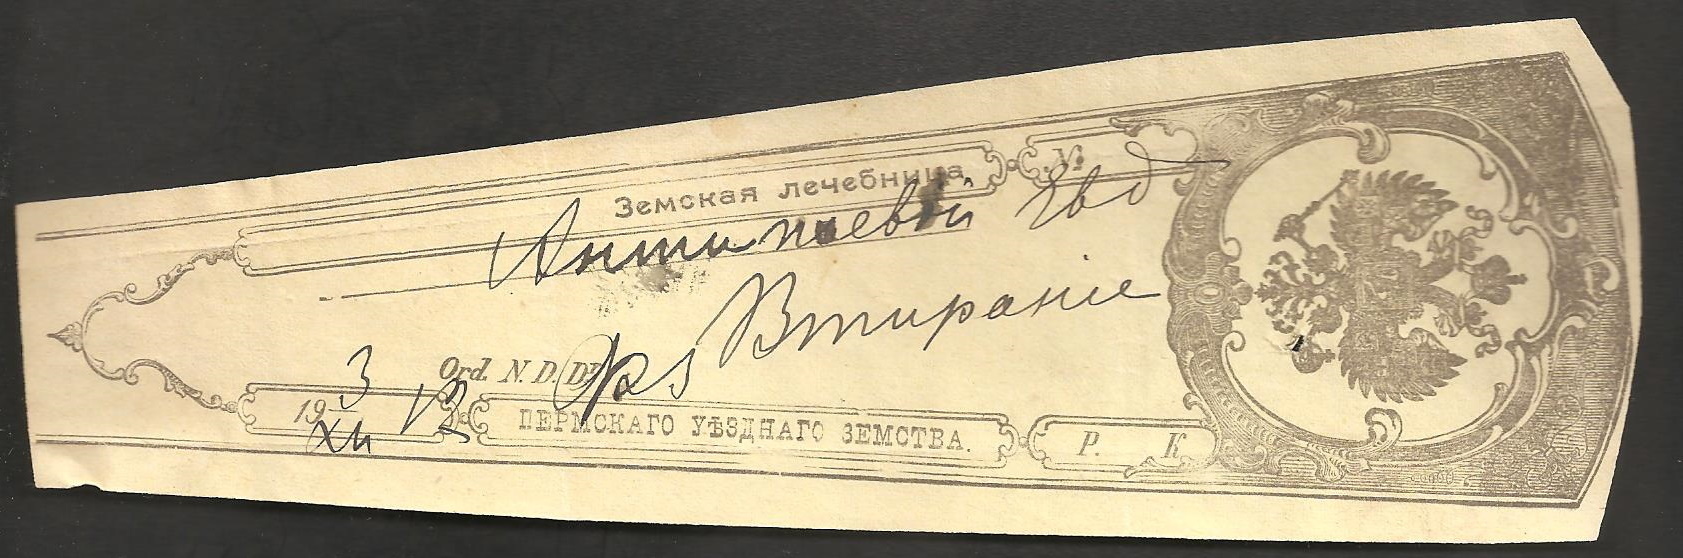 Земская лечебница № 
Антипьевой Евд
Втираніе
Ord. N. D. Dr
3
19 XII 12
ПЕРМСКАГО УѢЗДНАГО ЗЕМСТВА.
Р. К